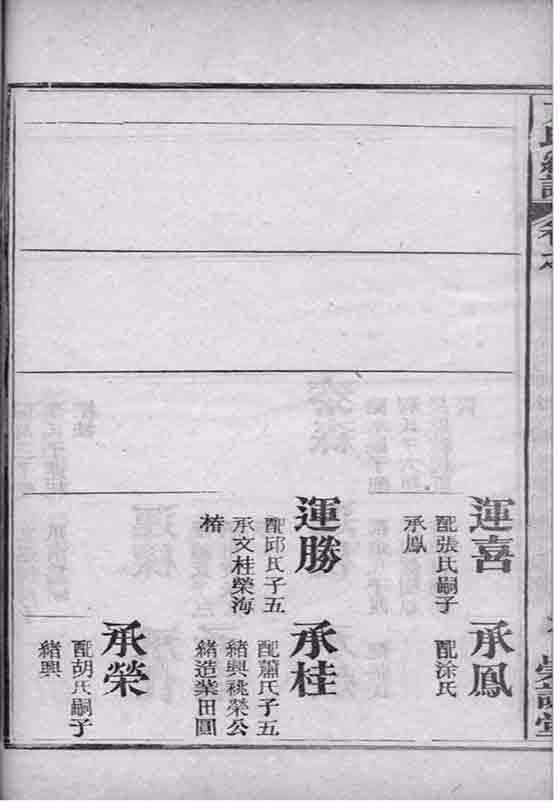 運喜
配張氏嗣子
承鳳
運勝
配邱氏子五
承文桂榮海
椿
承鳳
配涂氏
承桂
配蕭氏子五
緒興祧榮公
緒造業田圓
承榮
配胡氏嗣子
緒興